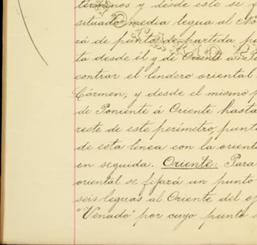 términos y desde este se
situado media legua al No
cá de punto de partida pu
ta desde él y de Oriente
contrar el lindero oriental
Cármen, y desde el mismo p
de Poniente á Oriente hasta
reste de este perímetro punt
de esta linea con la orient
en seguida. Oriente: Para
oriental se fijará un punto
seis leguas al Oriente del o
"Venado" por cuyo punto s